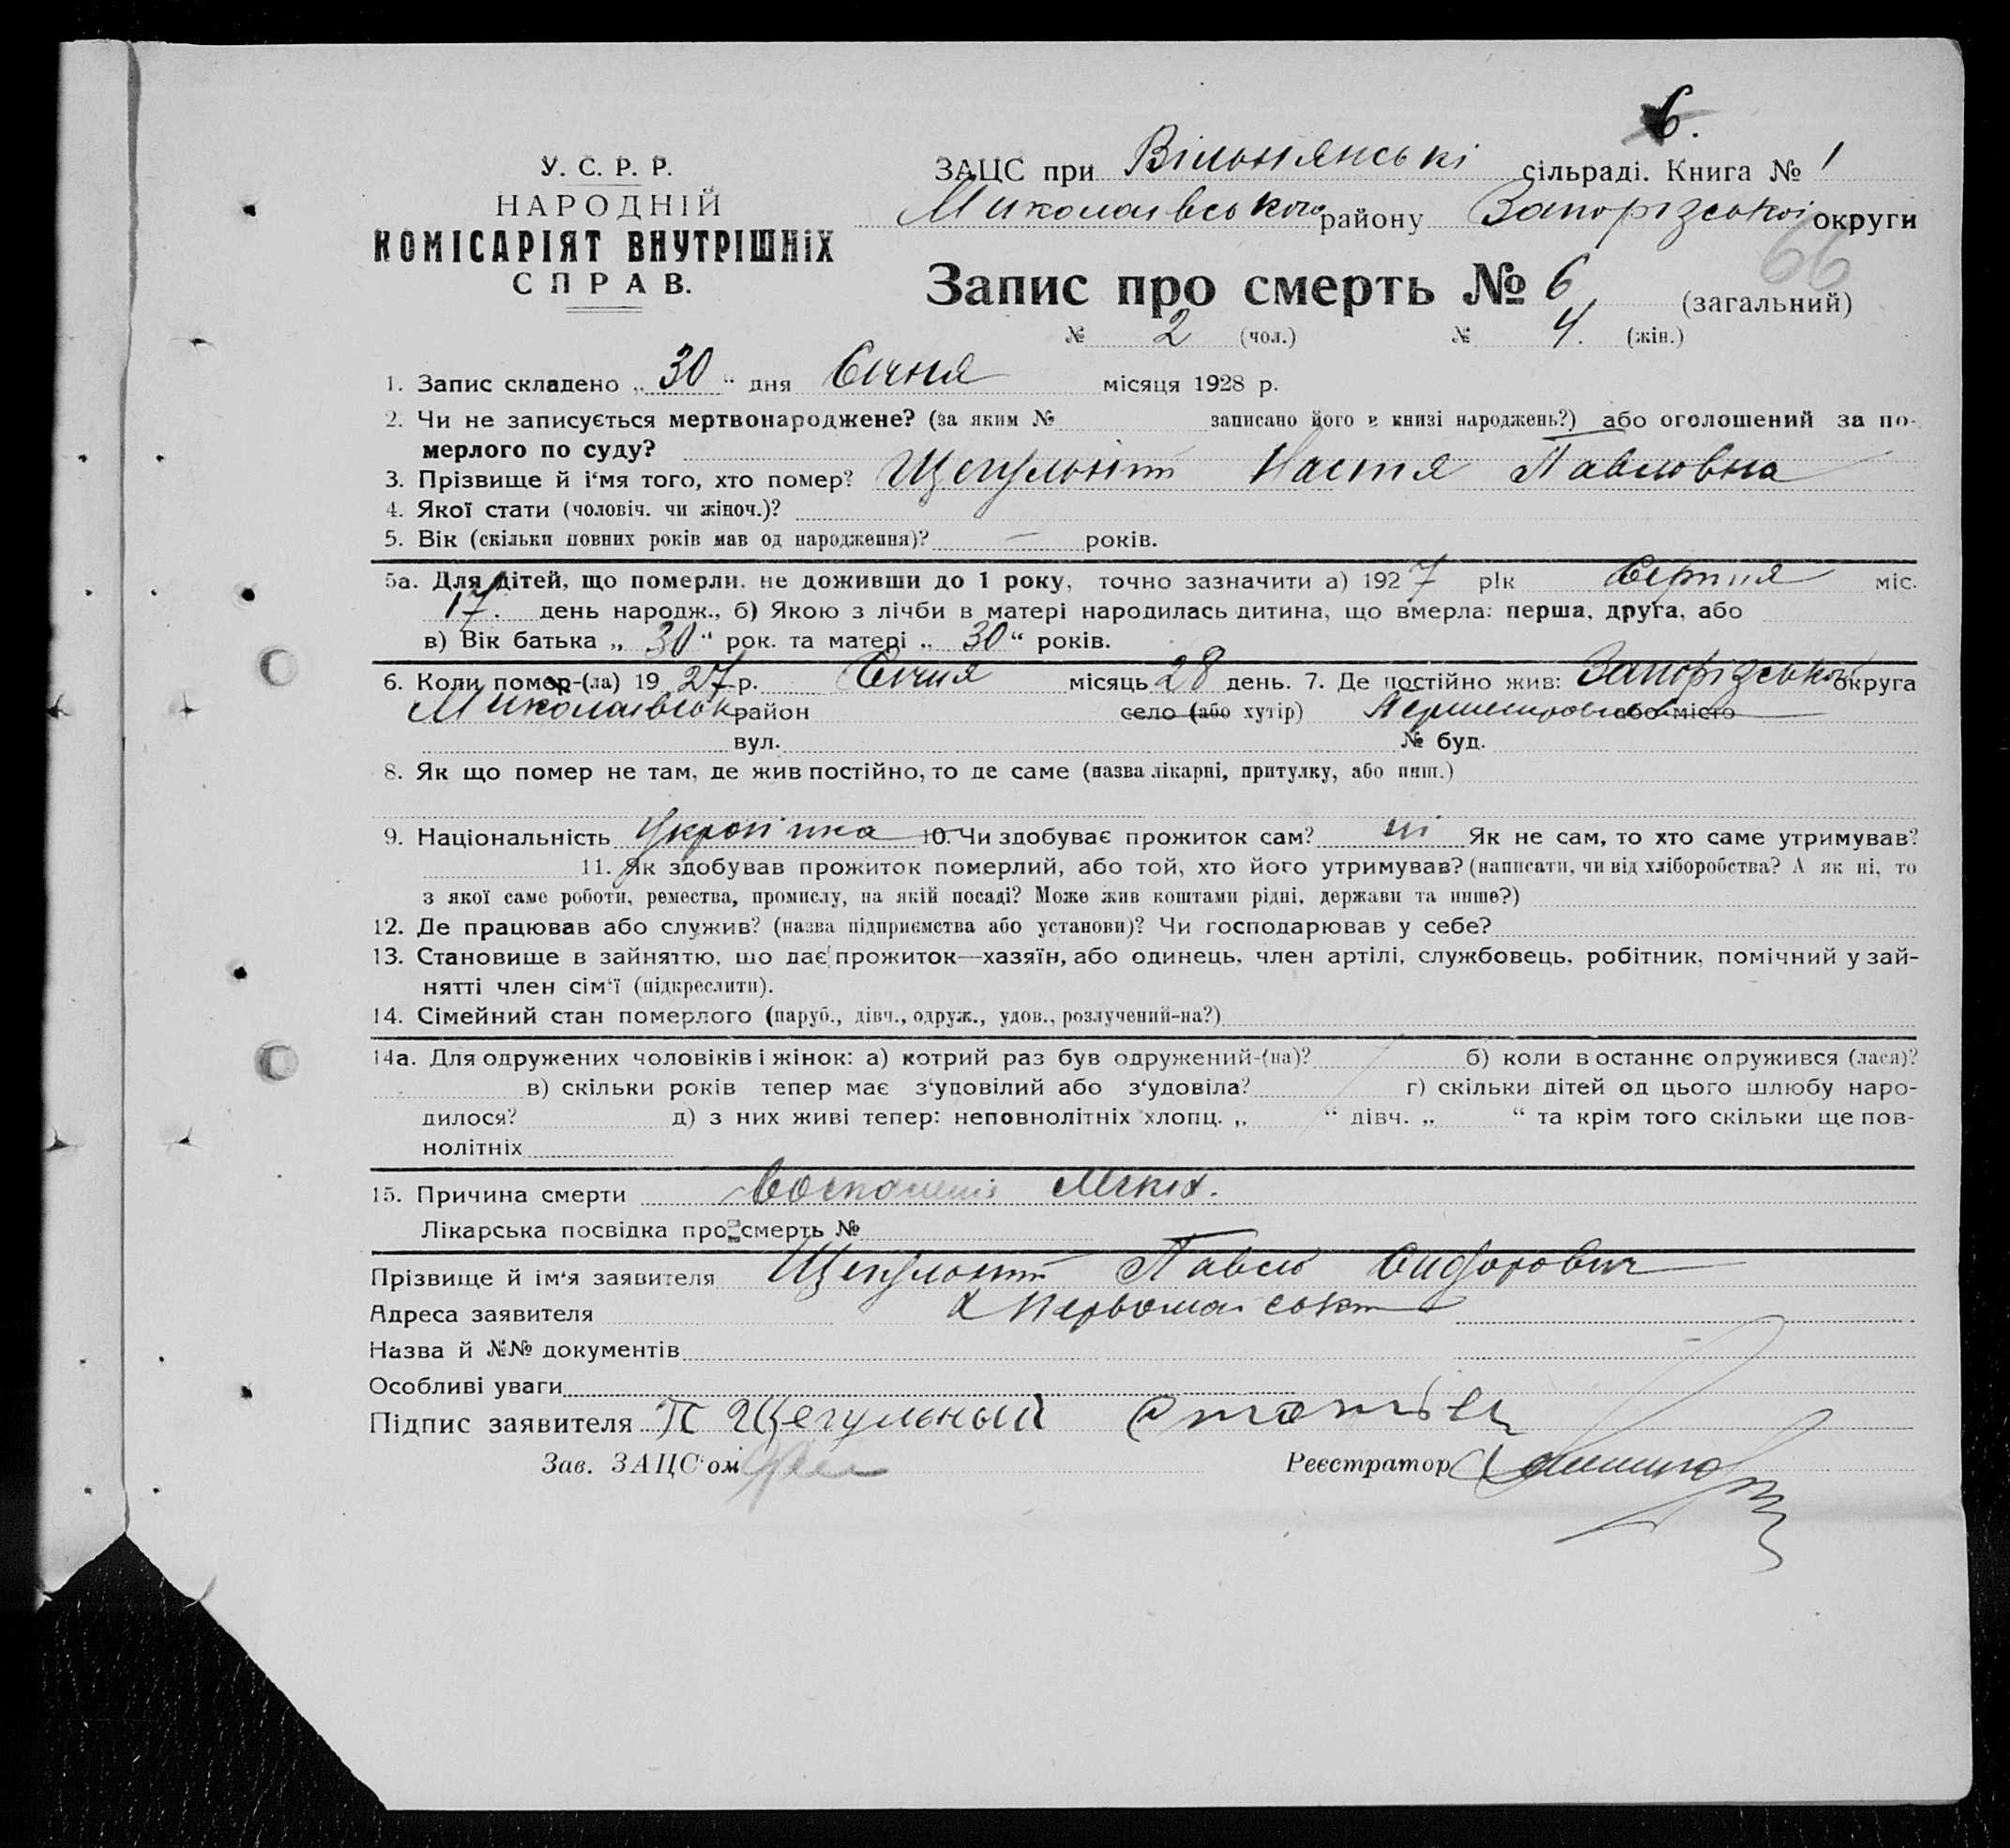 6.
У. С. Р. Р.
НАРОДНІЙ
КОМІСАРІЯТ ВНУТРІШНІХ
СПРАВ.
ЗАЦС при Вільнянські сільраді. Книга № 1
Миколаївського району Запорізської округи
66
Запис про смерть № 6 (загальний)
№ 2 (чол.) № 4. (жін.)
1. Запис складено „ 30 “ дня Січня місяця 1928 р.
2. Чи не записується мертвонароджене? (за яким № записано його в книзі народжень?) або оголошений за по-
мерлого по суду?
3. Прізвище й і‘мя того, хто помер? Настя Павловна
4. Якої стати (чоловіч. чи жіноч.)?
5. Вік (скільки повних років мав од народження)? — років.
5а. Для дітей, що померли, не доживши до 1 року, точно зазначити а) 1927 рік Серпня міс.
17. день народж., б) Якою з лічби в матері народилась дитина, що вмерла: перша, друга, або
в) Вік батька „ 30 “ рок. та матері „ 30 “ років.
6. Коли помер-(ла) 1927 р. Січня місяць 28 день. 7. Де постійно жив: Запорізської округа
Миколаївськ район село (або хутір) або місто
вул. № буд.
8. Як що помер не там, де жив постійно, то де саме (назва лікарні, притулку, або инш.)
9. Національність Україінка 10. Чи здобуває прожиток сам? ні Як не сам, то хто саме утримував?
11. Як здобував прожиток померлий, або той, хто його утримував? (написати, чи від хліборобства? А як ні, то
з якої саме роботи, ремества, промислу, на якій посаді? Може жив коштами рідні, держави та инше?)
12. Де працював або служив? (назва підприємства або установи)? Чи господарював у себе?
13. Становище в зайняттю, що дає прожиток—хазяїн, або одинець, член артілі, службовець, робітник, помічний у зай-
нятті член сім‘ї (підкреслити).
14. Сімейний стан померлого (паруб., дівч., одруж., удов., розлучений-на?)
14а. Для одружених чоловіків і жінок: а) котрий раз був одружений-(на)? б) коли в останнє одружився (лася)?
в) скільки років тепер має з‘удовілий або з‘удовіла? г) скільки дітей од цього шлюбу наро-
дилося? д) з них живі тепер: неповнолітніх хлопц. „ “ дівч. „ “ та крім того скільки ще пов-
нолітніх
15. Причина смерти Воспаленія Легких.
Лікарська посвідка про смерть №
Прізвище й ім‘я заявителя Павло Сидорович
Адреса заявителя х Первомайськ
Назва й №№ документів
Особливі уваги
Підпис заявителя П Щегульный
Зав. ЗАЦС‘ом Реєстратор